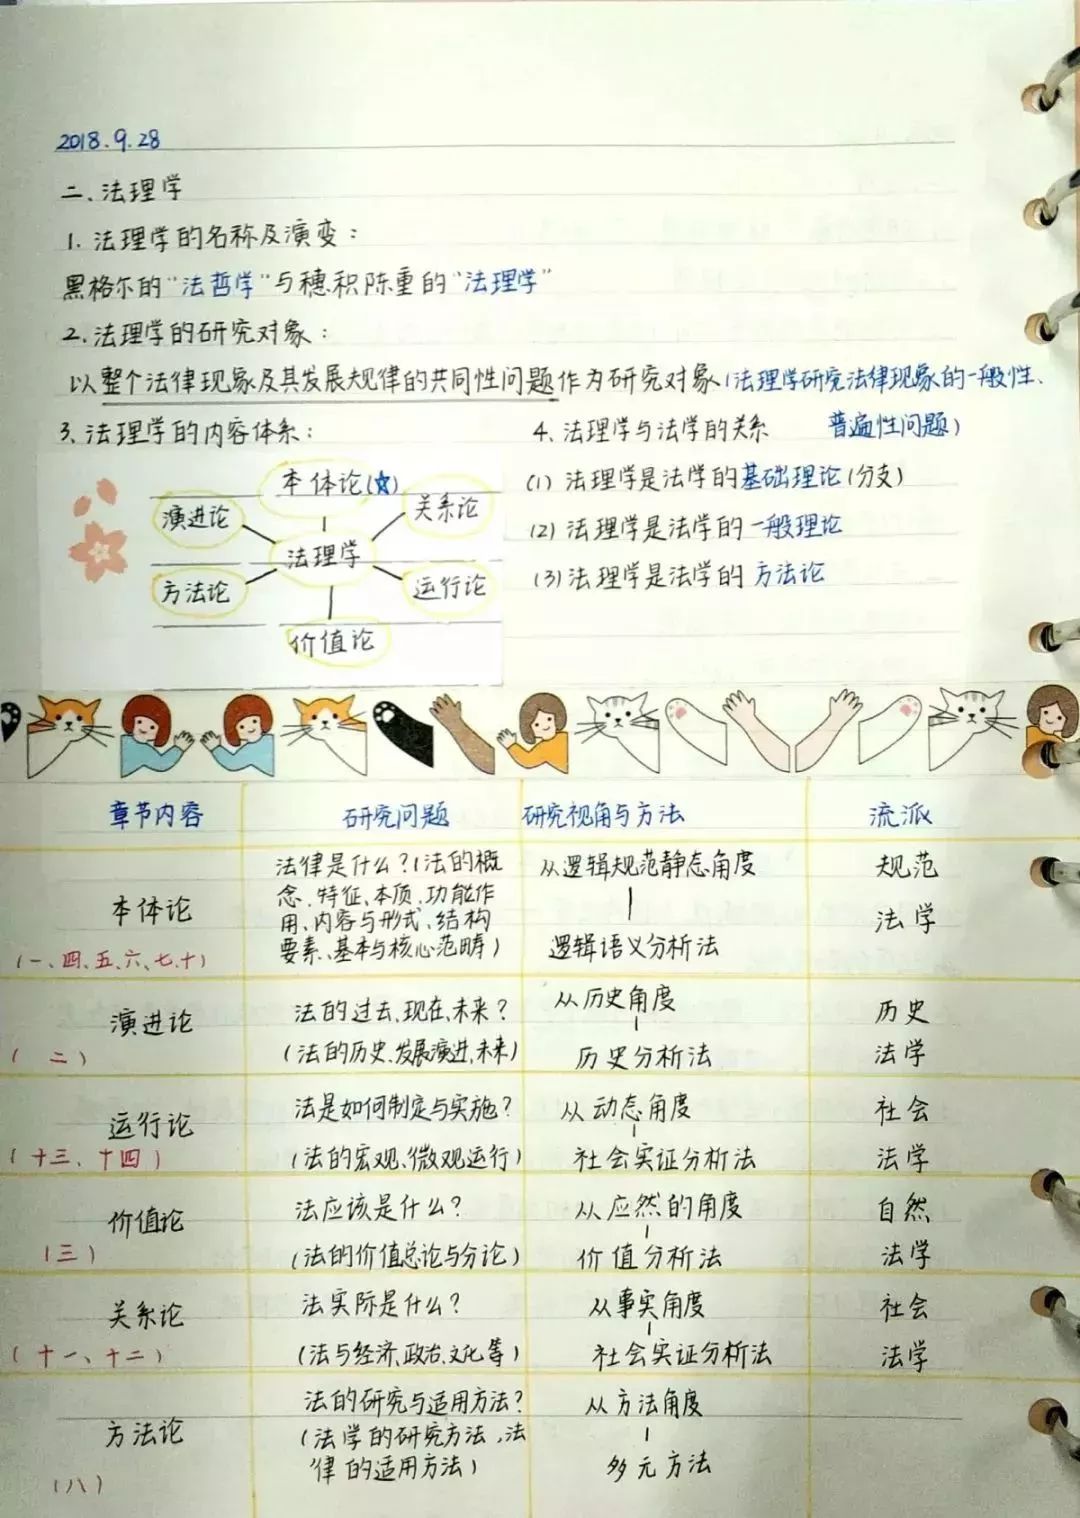 2018.9.28
二、法理学
1. 法理学的名称及演变：
黑格尔的“法哲学”与穗积陈重的“法理学”
2. 法理学的研究对象：
以整个法律现象及其发展规律的共同性问题作为研究对象(法理学研究法律现象的一般性、
普遍性问题)
3、法理学的内容体系：
本体论(☆)
演进论
关系论
法理学
方法论
运行论
价值论
4、法理学与法学的关系
(1) 法理学是法学的基础理论(分支)
(2) 法理学是法学的一般理论
(3) 法理学是法学的方法论
章节内容 研究问题 研究视角与方法 流派
本体论
(一、四、五、六、七、十)
法律是什么？(法的概
念、特征、本质、功能作
用、内容与形式、结构
要素、基本与核心范畴)
从逻辑规范静态角度
逻辑语义分析法
规范
法学
演进论
(二)
法的过去、现在、未来？
(法的历史、发展演进、未来)
从历史角度
历史分析法
历史
法学
运行论
(十三、十四)
法是如何制定与实施？
(法的宏观、微观运行)
从动态角度
社会实证分析法
社会
法学
价值论
(三)
法应该是什么？
(法的价值总论与分论)
从应然的角度
价值分析法
自然
法学
关系论
(十一、十二)
法实际是什么？
(法与经济、政治、文化等)
从事实角度
社会实证分析法
社会
法学
方法论
(八)
法的研究与适用方法？
(法学的研究方法，法
律的适用方法)
从方法角度
多元方法